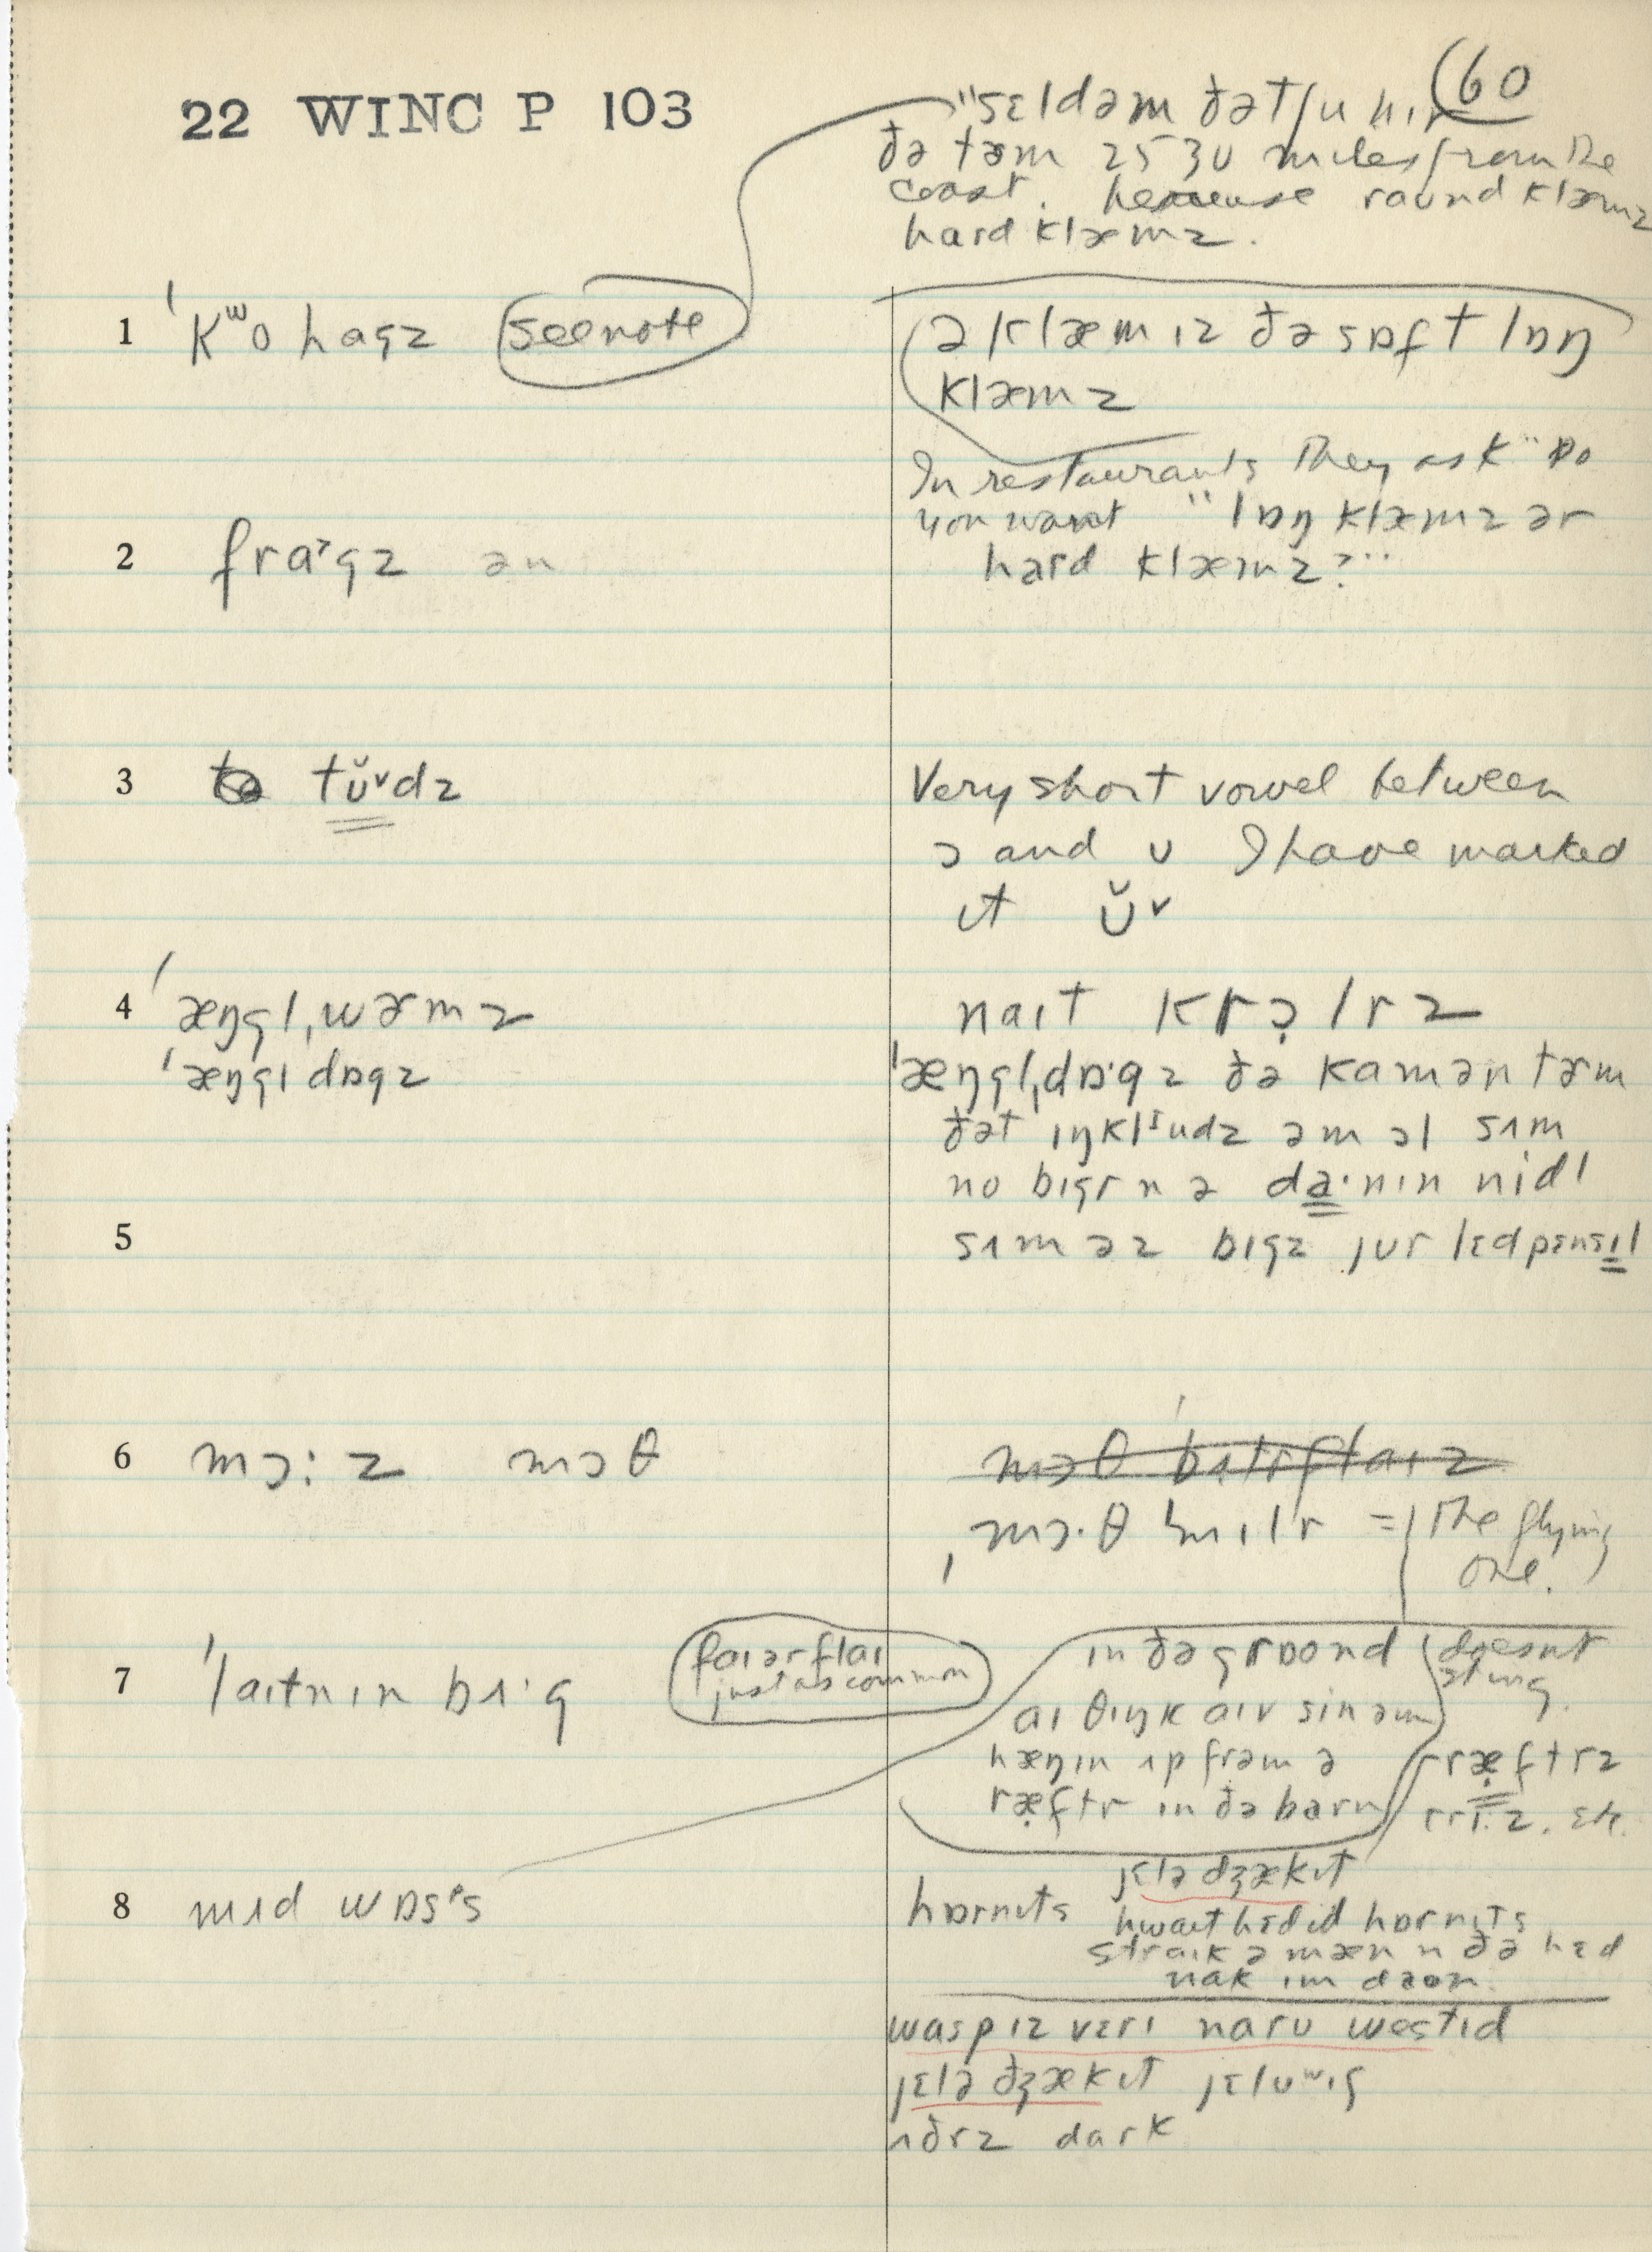 22 WINC P 103
60
"sɛldəm ðət ju hır
ðə tɚm 25 30 miles from the
coast. because raʊnd klæmz
hard klæmz.
1 ˈkʷo hagz see note
ə klæm ız ðə sɒft lɒŋ
klæmz
In restaurants they ask "Do
you want "lɒŋ klæmz ər
hard klæmz?"
2 fraˑgz ən
3 tʊ̆ᵛdz
Very short vowel between
ɔ and ʊ I have marked
it ʊ̆ᵛ
4 ˈæŋgl,wɚmz
ˈæŋgl dɒgz
naıt krɔ̣lrz
ˈæŋgl,dɒˑgz ðə kamən tɚm
ðət ıŋklᴵudz əm ɔl sʌm
no bıgr n ə da·nın nidl
5
sʌm əz bıgz jur lɛdpɛnsıl
6 mɔ:z mɔθ
mɔθ bʌtrflaız
ˌmɔ·θ mılr = (The flying
one.)
7 ˈlaıtnın bʌ·g
faıərflaı
just as common
ın ðə graʊnd (doesnt
sting.
aı θıŋk aıv sin əm
hæŋın ʌp frəm ə
ræ̣ftr ın ðə barn
ræ̣ftrz
tri·z. etc.
8 mʌd wɒsᵖs
hɒrnıts
jɛlə dʒækıt
hwaıt hɛdıd hɒrnıts
straık ə mæn n ðə hɛd
nak ım daʊn.
wasp ız vɛrı naro westıd
jɛlə dʒækıt jɛloʷıʃ
ʌðrz dark